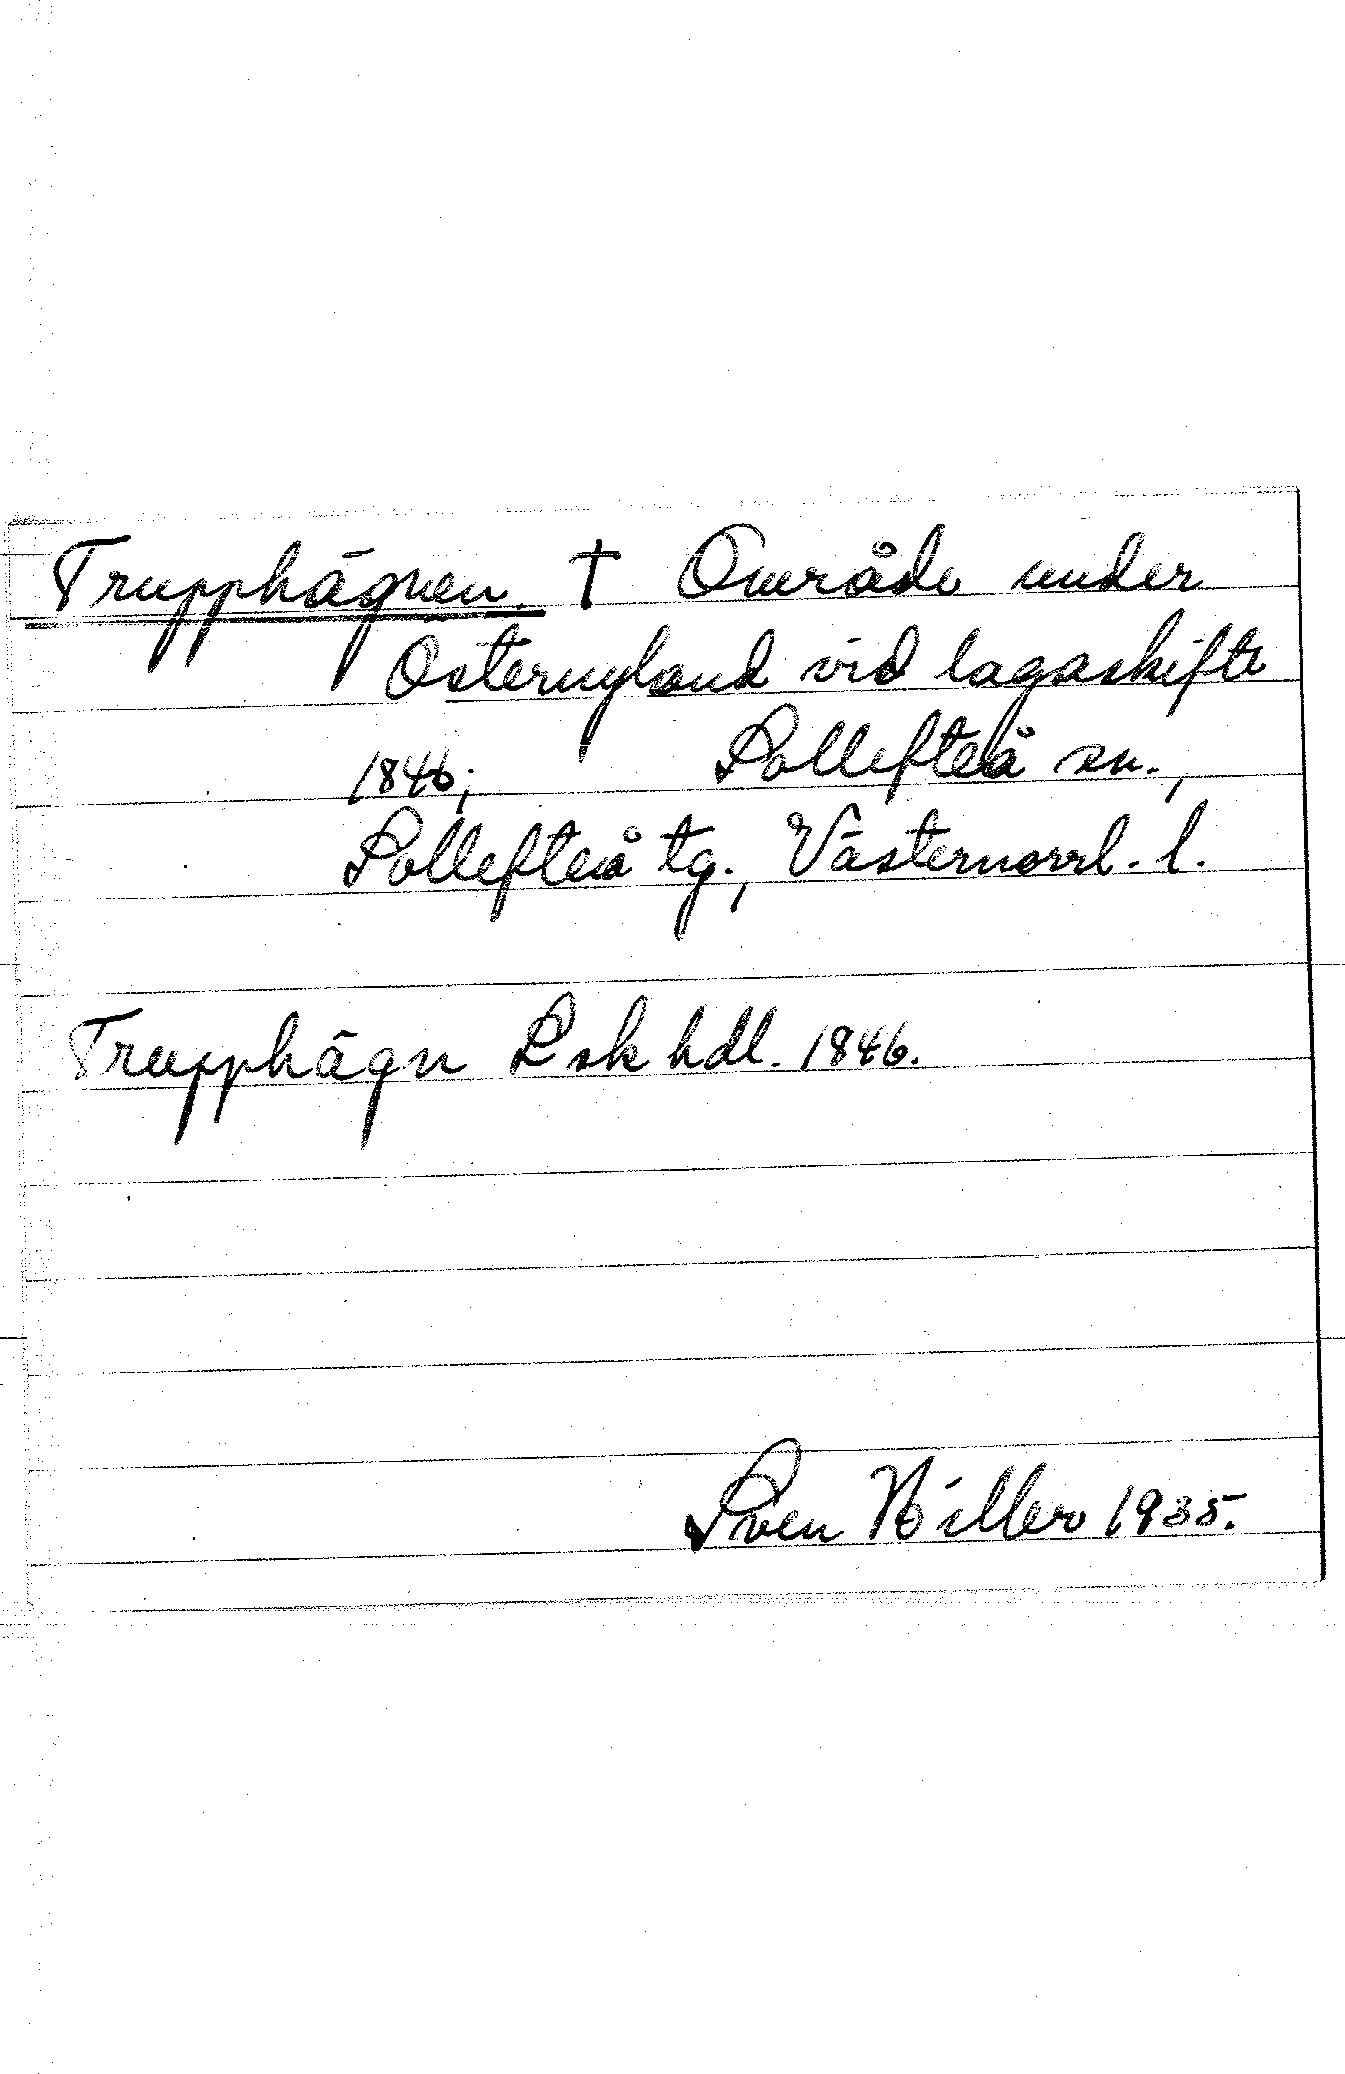 Trupphägnen. † Område under
Östernyland vid lagaskifte
1846; Sollefteå sn.,
Sollefteå tg., Västernorrl. l.
Trupphägn Lskhdl. 1846.
Sven Hillero 1935.